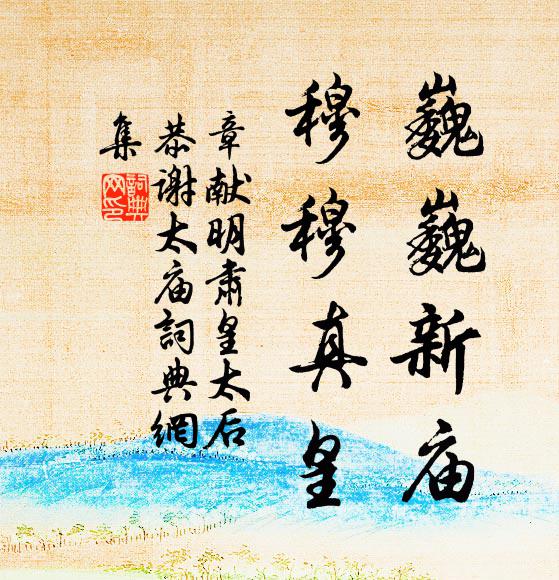 巍巍新庙
穆穆真皇
章献明肃皇太后
恭谢太庙詞典網
集
詞典网印